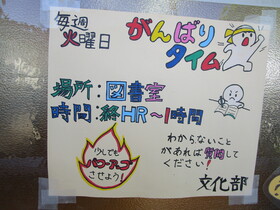 毎週
火曜日
がんばり
タイム
場所：図書室
時間：終HR〜1時間
わからないこと
があれば質問して
ください！
少しでも
させよう！
文化部